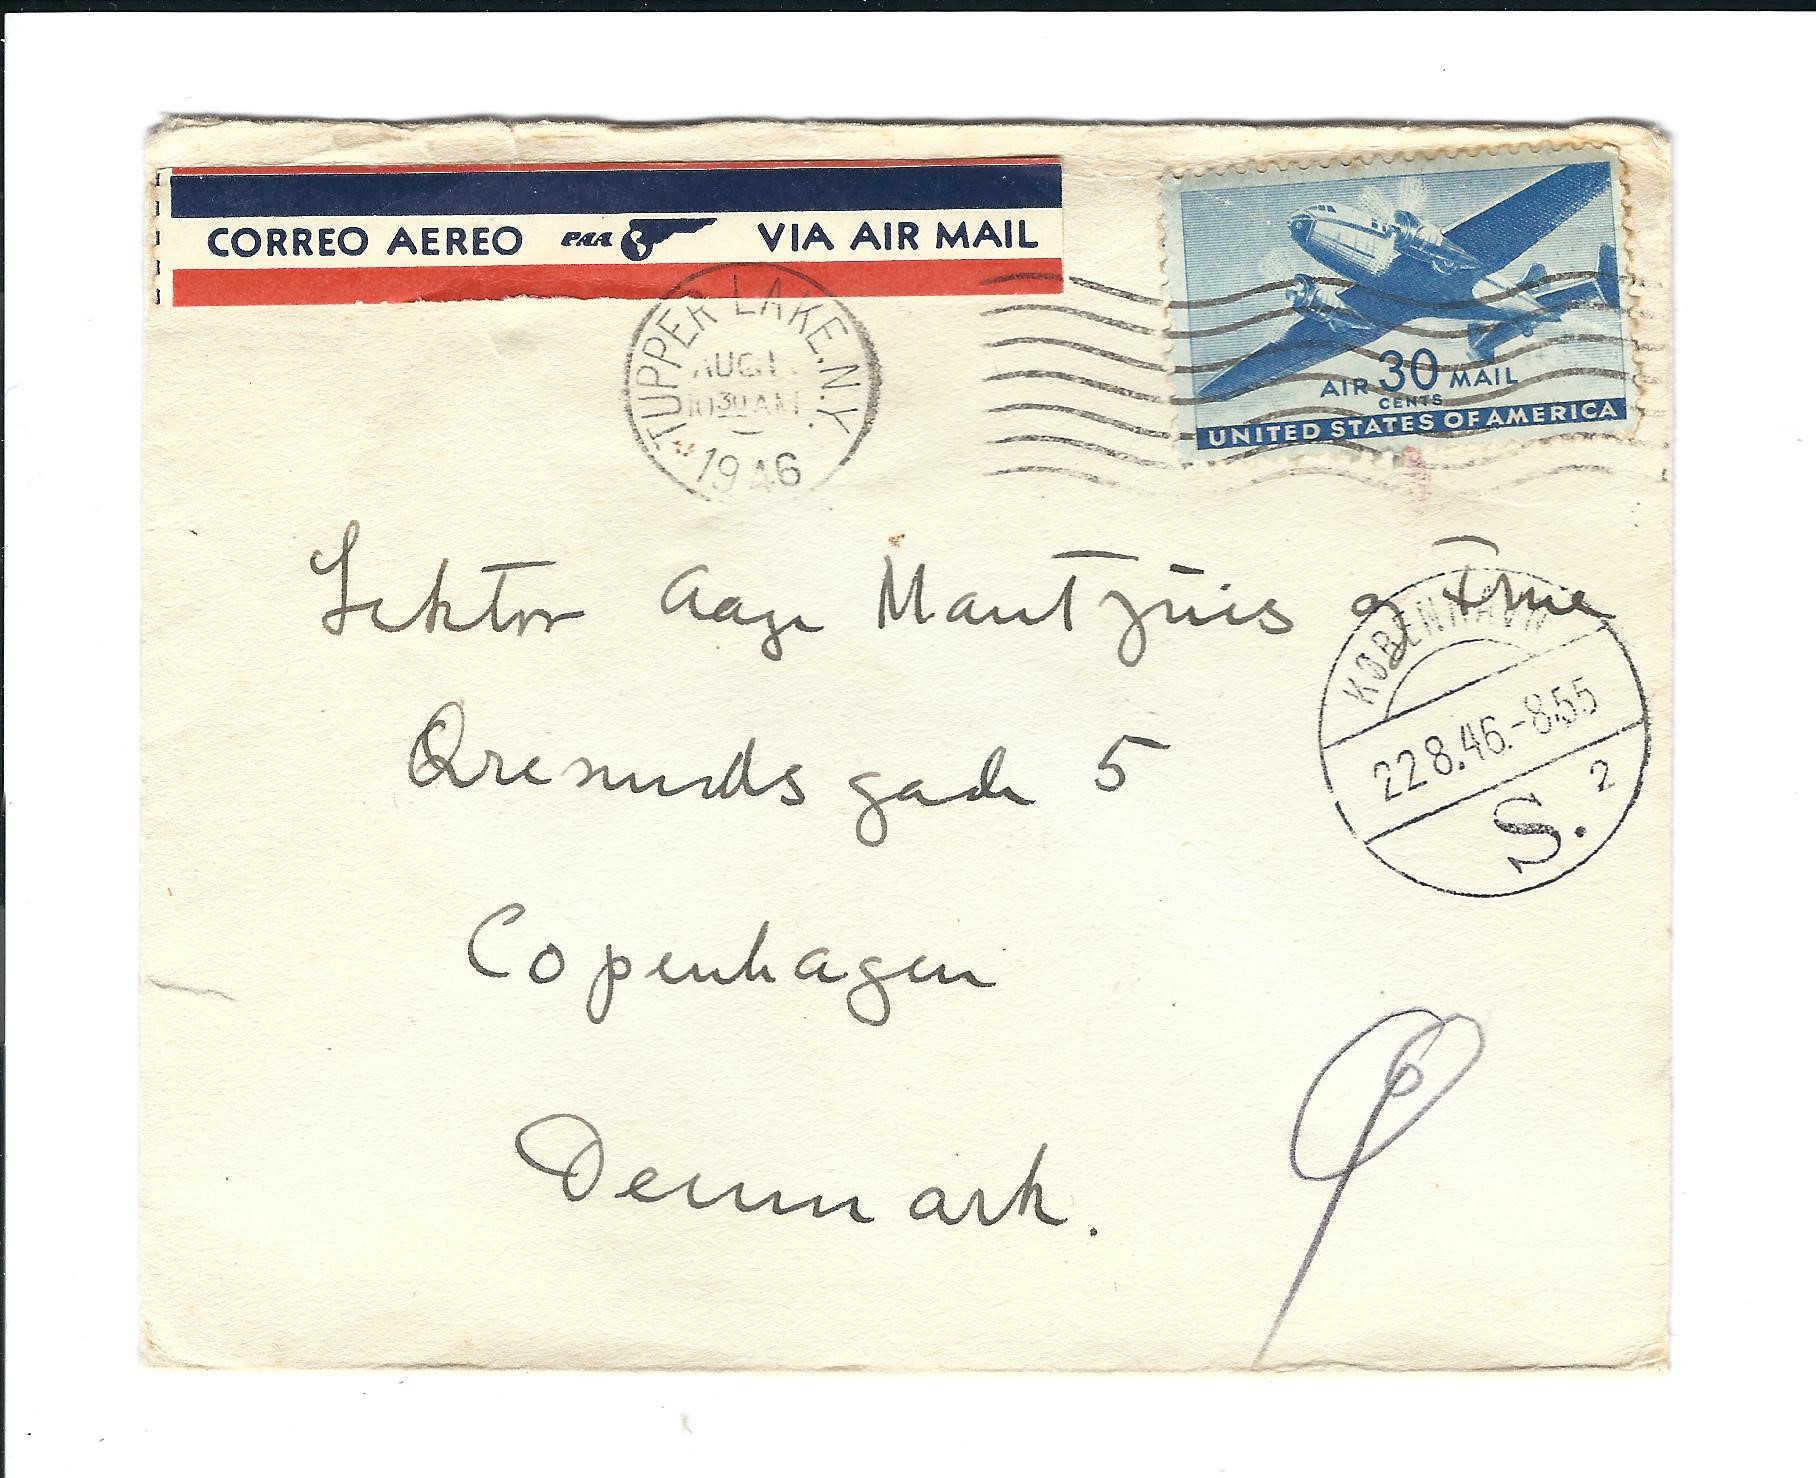 CORREO AEREO PAA VIA AIR MAIL
TUPPER LAKE, N.Y.
AUG 1
10 30 AM
1946
AIR 30 MAIL
CENTS
UNITED STATES OF AMERICA
Lektor Aage Mantzius og Frue
Øresundsgade 5
Copenhagen
Denmark.
KØBENHAVN
22.8.46.-8.55
S. 2